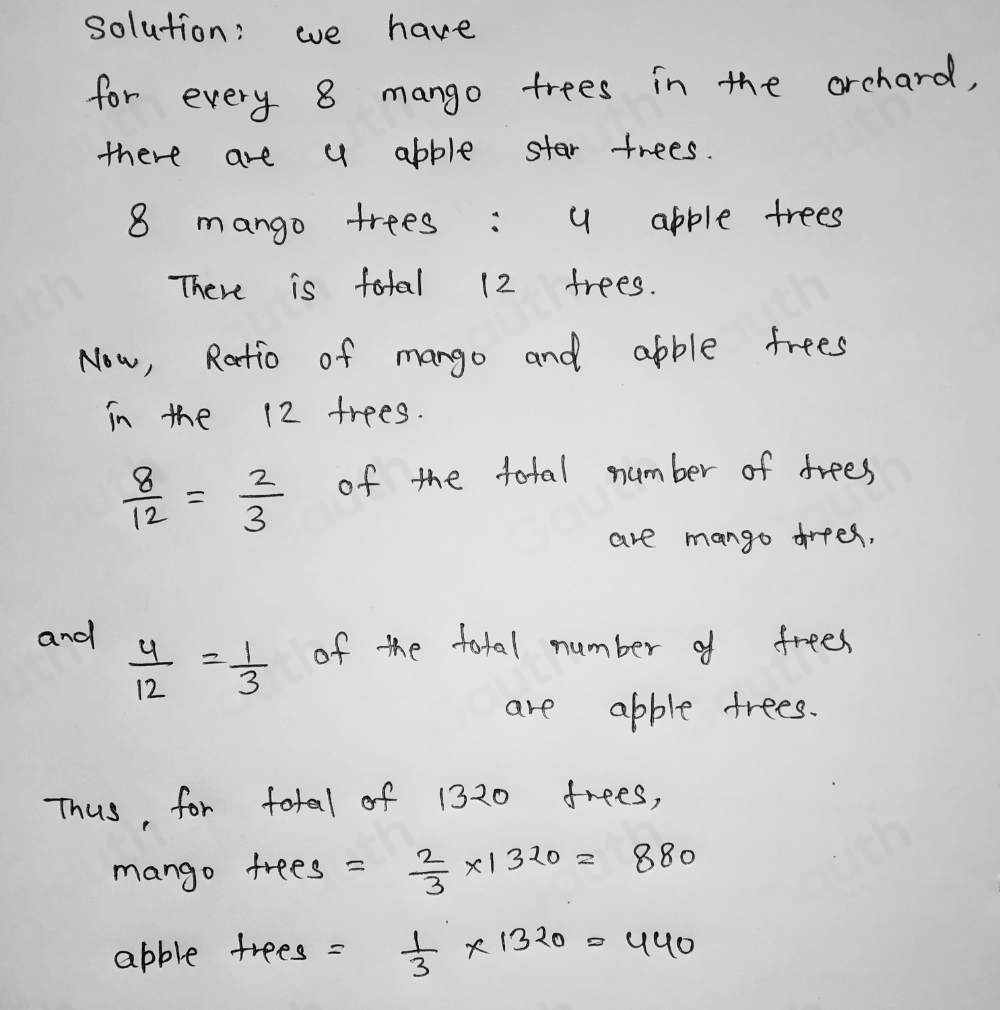 Solution: we have
for every 8 mango trees in the orchard,
there are 4 apple star trees.
8 mango trees : 4 apple trees
There is total 12 trees.
Now, Ratio of mango and apple trees
in the 12 trees.
8/12 = 2/3 of the total number of trees
are mango trees.
and 4/12 = 1/3 of the total number of trees
are apple trees.
Thus, for total of 1320 trees,
mango trees = 2/3 × 1320 = 880
apple trees = 1/3 × 1320 = 440